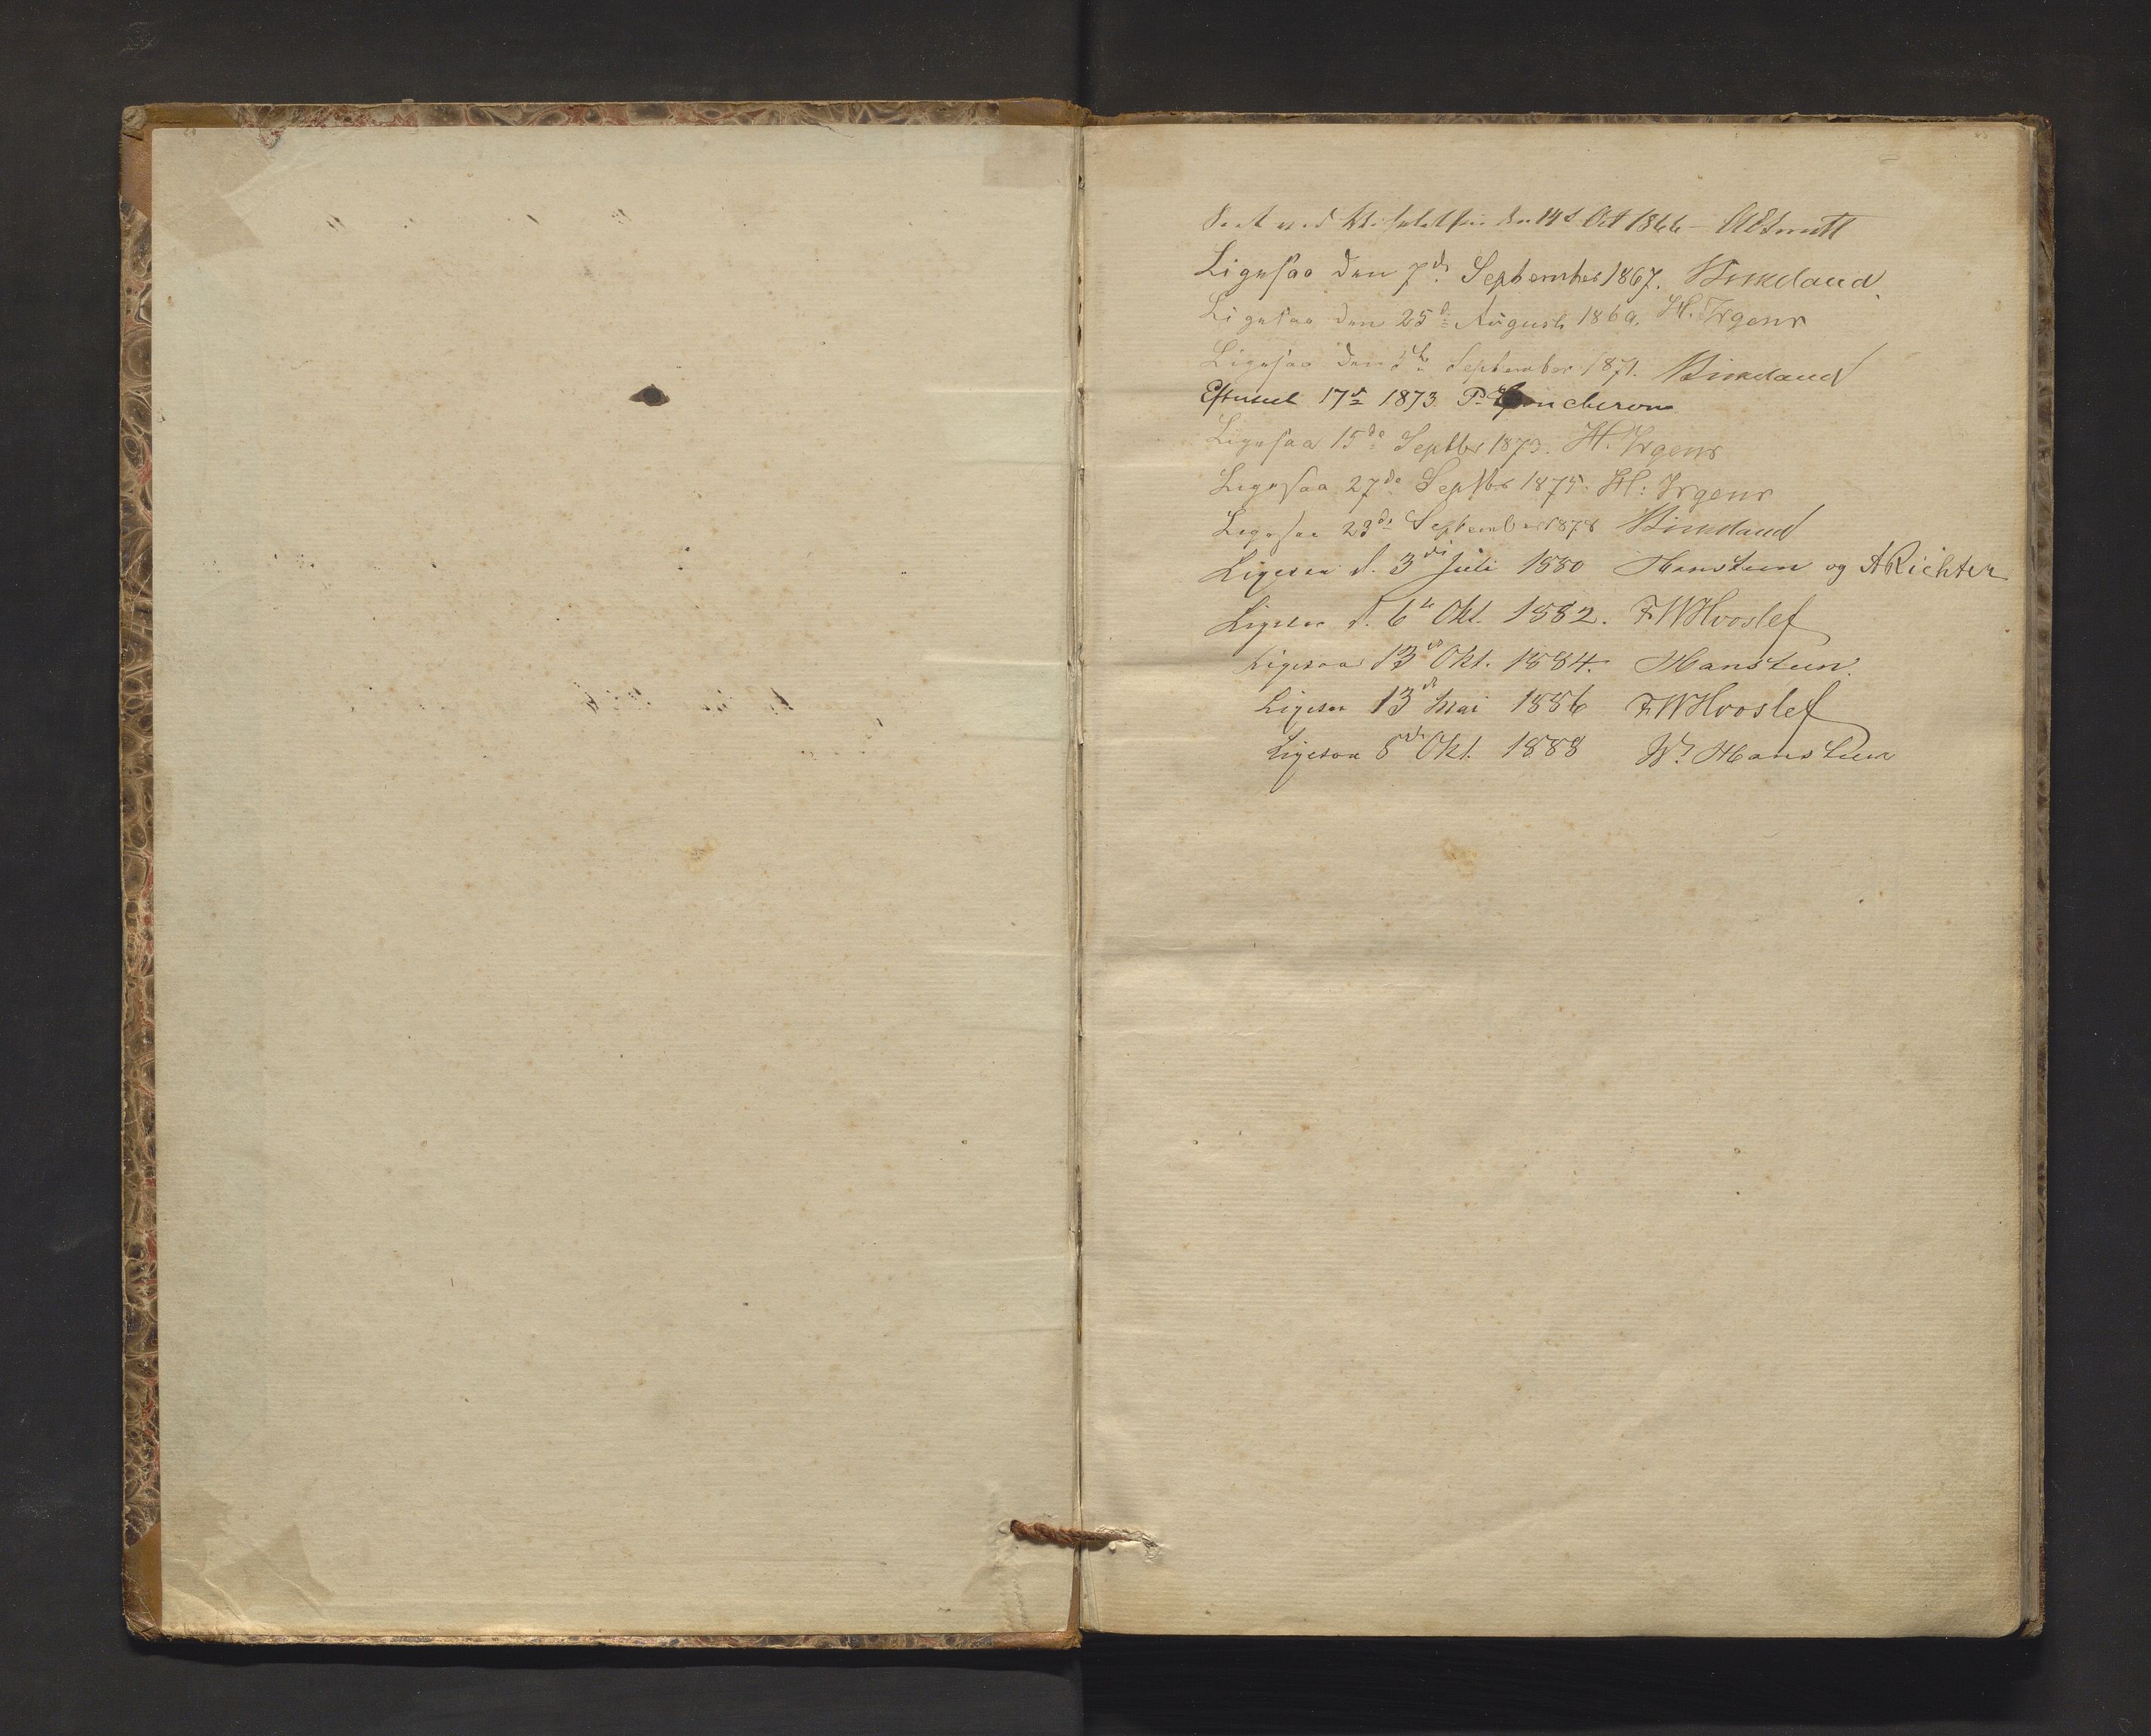 Seet ved Visitatsen den 14d Oct 1866 –
Ligesaa den 7de September 1867. Birkeland.
Ligesaa den 25de August 1869. H. Irgens
Ligesaa den 5te September 1871. Birkeland
Efterseet 17de 1873 P.
Ligesaa 15de Septbr 1873. H. Irgens
Ligesaa 27de Septbr 1875. H: Irgens
Ligesaa 23de September 1878 Birkeland
Ligesaa d. 3die Juli 1880 Hansteen og A Richter
Ligesaa d. 6te Okt. 1882. F W Hvoslef
Ligesaa 13de Okt. 1884. Hansteen.
Ligesaa 13de Mai 1886 F W Hvoslef
Ligesaa 8de Okt. 1888 W. Hansteen